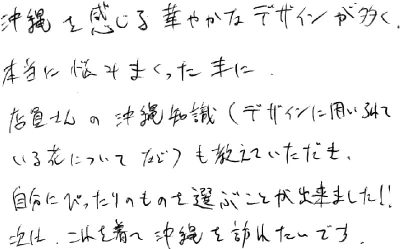 沖縄を感じる華やかなデザインが多く、
本当に悩みまくった末に、
店員さんの沖縄知識(デザインに用いられて
いる花について など)も教えていただき、
自分にぴったりのものを選ぶことが出来ました!!
次は、これを着て沖縄を訪れたいです。